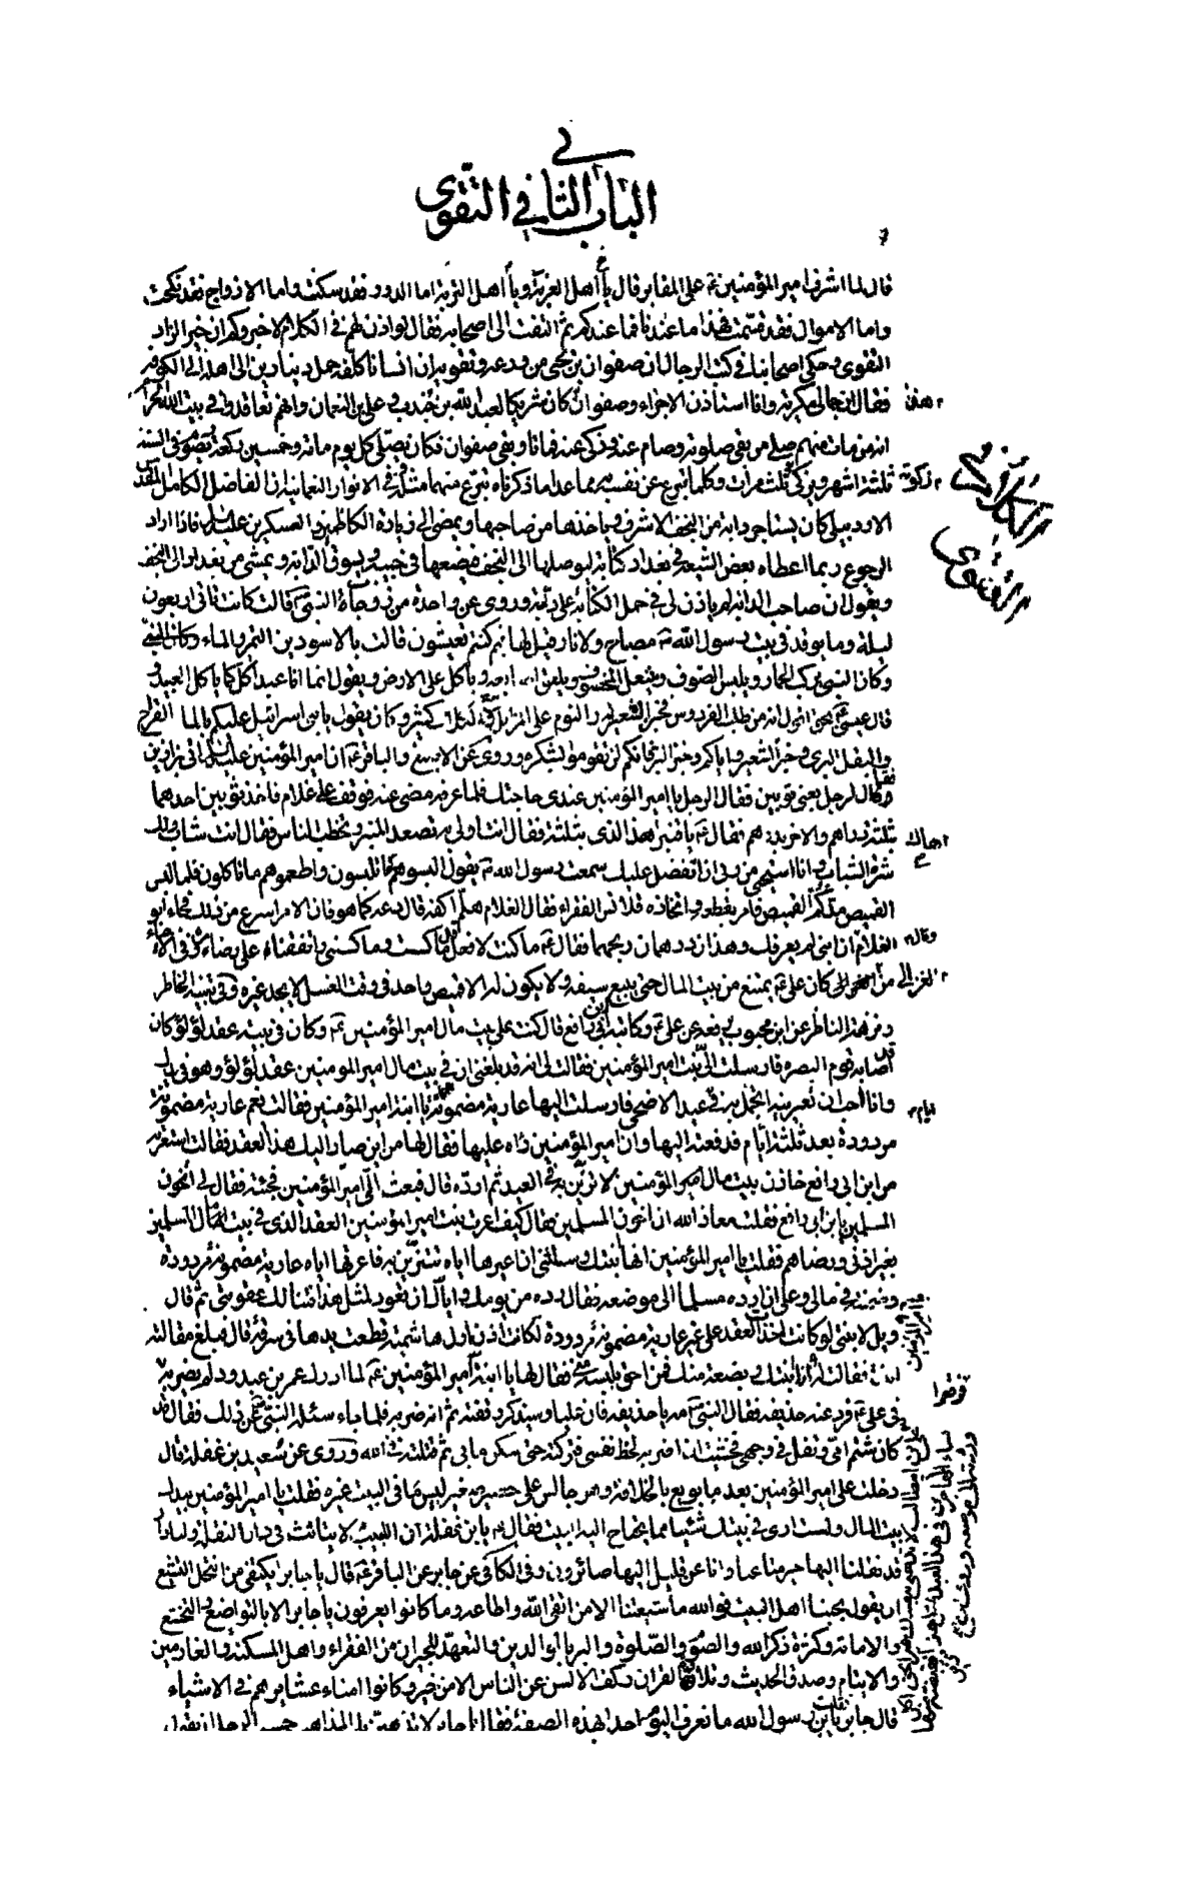 في
الباب الثاني في التقوى
قال لما اشرف امير المؤمنين ع على المقابر قال يا أهل الغربة ويا أهل التربة اما الدور فقد سكنت واما الازواج فقد نكحت
واما الاموال فقد قسمت فهذا ما عندنا فما عندكم ثم التفت الى اصحابه فقال لو اذن لهم في الكلام لاخبروكم ان خير الزاد
التقوى وحكى اصحابنا في كتب الرجال ان صفوان بن يحيى من ورعه وتقويه ان انسانا كلفه حمل دينارين الى اهله الى الكوفة
فقال ان جمالي مكرية وانا استاذن الاجراء وصفوان كان شريكا لعبد الله بن جندب وعلي بن النعمان وانهم تعاقدوا في بيت الله الحرام
انه من مات منهم صلى من بقي صلوته وصام عنه وزكى عنه فماتا وبقي صفوان فكان يصلي كل يوم مائة وخمسين ركعة ويصوم في السنة
ثلثة اشهر ويزكي ثلث مرات وكلما تبرع عن نفسه مما عدا ما ذكرناه تبرع عنهما مثله في الانوار النعمانية ان الفاضل الكامل المقدس
الاردبيلي كان يستاجر دابة من النجف الاشرف ياخذها من صاحبها ويمضي الى زيارة الكاظمين والعسكريين عليهم السلام فاذا اراد
الرجوع ربما اعطاه بعض الشيعة في بغداد كتابة ليوصلها الى النجف فيضعها في جيبه ويسوق الدابة ويمشي من بغداد الى النجف
ويقول ان صاحب الدابة لم ياذن لي في حمل الكتابة على دابته وروي عن واحدة من زوجات النبي ص قالت كانت تاتي اربعون
ليلة وما يوقد في بيت رسول الله ص مصباح ولا نار قيل لها فبم كنتم تعيشون قالت بالاسودين التمر والماء
وكان النبي يركب الحمار ويلبس الصوف وينتعل المخصوف ويلعق اصابعه وياكل على الارض ويقول انما انا عبد آكل كما ياكل العبيد
قال عيسى ع بحق اقول انه من طلب الفردوس فخبز الشعير له والنوم على المزابل مع الكلاب كثير وكان يقول يا بني اسرائيل عليكم بالماء القراح
والبقل البري وخبز الشعير واياكم وخبز البر فانكم لن تقوموا بشكره وروي عن الاصبغ والباقر ع ان امير المؤمنين عليه السلام اتى بزازين
فقال لرجل بعني ثوبين فقال الرجل يا امير المؤمنين عندي حاجتك فلما عرفه مضى عنه فوقف على غلام فاخذ ثوبين احدهما
بثلثة دراهم والاخر بدرهم فقال ع يا قنبر هذا الذي بثلثة فقال انت اولى به تصعد المنبر وتخطب الناس فقال انت شاب ولك
شرة الشباب وانا استحيي من ربي ان اتفضل عليك سمعت رسول الله ص يقول البسوهم مما تلبسون واطعموهم مما تاكلون فلما لبس
القميص مد كم القميص فامر بقطعه واتخاذه قلانس للفقراء فقال الغلام هلم اكفه قال دعه كما هو فان الامر اسرع من ذلك فجاء ابو
الغلام ان ابني لم يعرفك وهذان درهمان ربحهما فقال ع ما كنت لافعل ماكست وماكسني واتفقنا على رضاء وفي الاحياء
كان علي ع يمتنع من بيت المال حتى يبيع سيفه ولا يكون له الا قميص واحد في وقت الغسل لا يجد غيره وفي تنبيه الخاطر
ونزهة الناظر عن ابن محبوب يرفعه عن علي بن ابي رافع قال كنت على بيت مال امير المؤمنين ع وكان في بيته عقد لؤلؤ كان
اصابه يوم البصرة فارسلت الي بنت امير المؤمنين فقالت لي انه قد بلغني ان في بيت مال امير المؤمنين عقد لؤلؤ وهو في يدك
وانا احب ان تعيرنيه اتجمل به في عيد الاضحى فارسلت اليها عارية مضمونة يا ابنة امير المؤمنين فقالت نعم عارية مضمونة
مردودة بعد ثلثة ايام فدفعته اليها وان امير المؤمنين رآه عليها فقال لها من اين صار اليك هذا العقد فقالت استعرته
من ابن ابي رافع خازن بيت مال امير المؤمنين لاتزين به في العيد ثم ارده قال فبعث الي امير المؤمنين فجئته فقال لي اتخون
المسلمين يا بن ابي رافع فقلت معاذ الله ان اخون المسلمين فقال كيف اعرت بنت امير المؤمنين العقد الذي في بيت مال المسلمين
بغير اذني ورضاهم فقلت يا امير المؤمنين انها بنتك وسئلتني ان اعيرها اياه تتزين به فاعرتها اياه عارية مضمونة مردودة
وضمنته في مالي وعلي ان ارده مسلما الى موضعه فقال رده من يومك واياك ان تعود لمثل هذا فتنالك عقوبتي ثم قال
ويل لابنتي لو كانت اخذت العقد على غير عارية مضمونة مردودة لكانت اذن اول هاشمية قطعت يدها في سرقة قال فبلغ مقالته
ابنته فقالت له انا ابنتك وبضعة منك فمن احق بلبسه مني فقال لها يا ابنة امير المؤمنين
في علي ع فرد عنه حذيفة فقال النبي ص مه يا حذيفة فان عليا سيذكر وقفته ثم انه ضربه فلما جاء سئله النبي ص عن ذلك فقال قد
كان شتم امي وتفل في وجهي فخشيت ان اضربه لحظ نفسي فتركته حتى سكن ما بي ثم قتلته في الله وروي عن سويد بن غفلة قال
دخلت على امير المؤمنين بعد ما بويع بالخلافة وهو جالس على حصير صغير ليس في البيت غيره فقلت يا امير المؤمنين بيدك
بيت المال ولست ارى في بيتك شيئا مما يحتاج اليه البيت فقال ع يا بن غفلة ان اللبيب لا يتاثث في دار النقلة ولنا دار
قد نقلنا اليها خير متاعنا وانا عن قليل اليها صائرون وفي الكافي عن جابر عن الباقر ع قال يا جابر ايكتفي من انتحل التشيع
ان يقول بحبنا اهل البيت فوالله ما شيعتنا الا من اتقى الله واطاعه وما كانوا يعرفون يا جابر الا بالتواضع والتخشع
والامانة وكثرة ذكر الله والصوم والصلوة والبر بالوالدين والتعهد للجيران من الفقراء واهل المسكنة والغارمين
والايتام وصدق الحديث وتلاوة القران وكف الالسن عن الناس الا من خير وكانوا امناء عشايرهم في الاشياء
قال جابر فقلت يا بن رسول الله ما نعرف اليوم احدا بهذه الصفة فقال يا جابر لا تذهبن بك المذاهب حسب الرجل ان يقول
زكوة
الكلام في
التقوى
هاك
وقال
الغزالي
ايام
فرقهوا